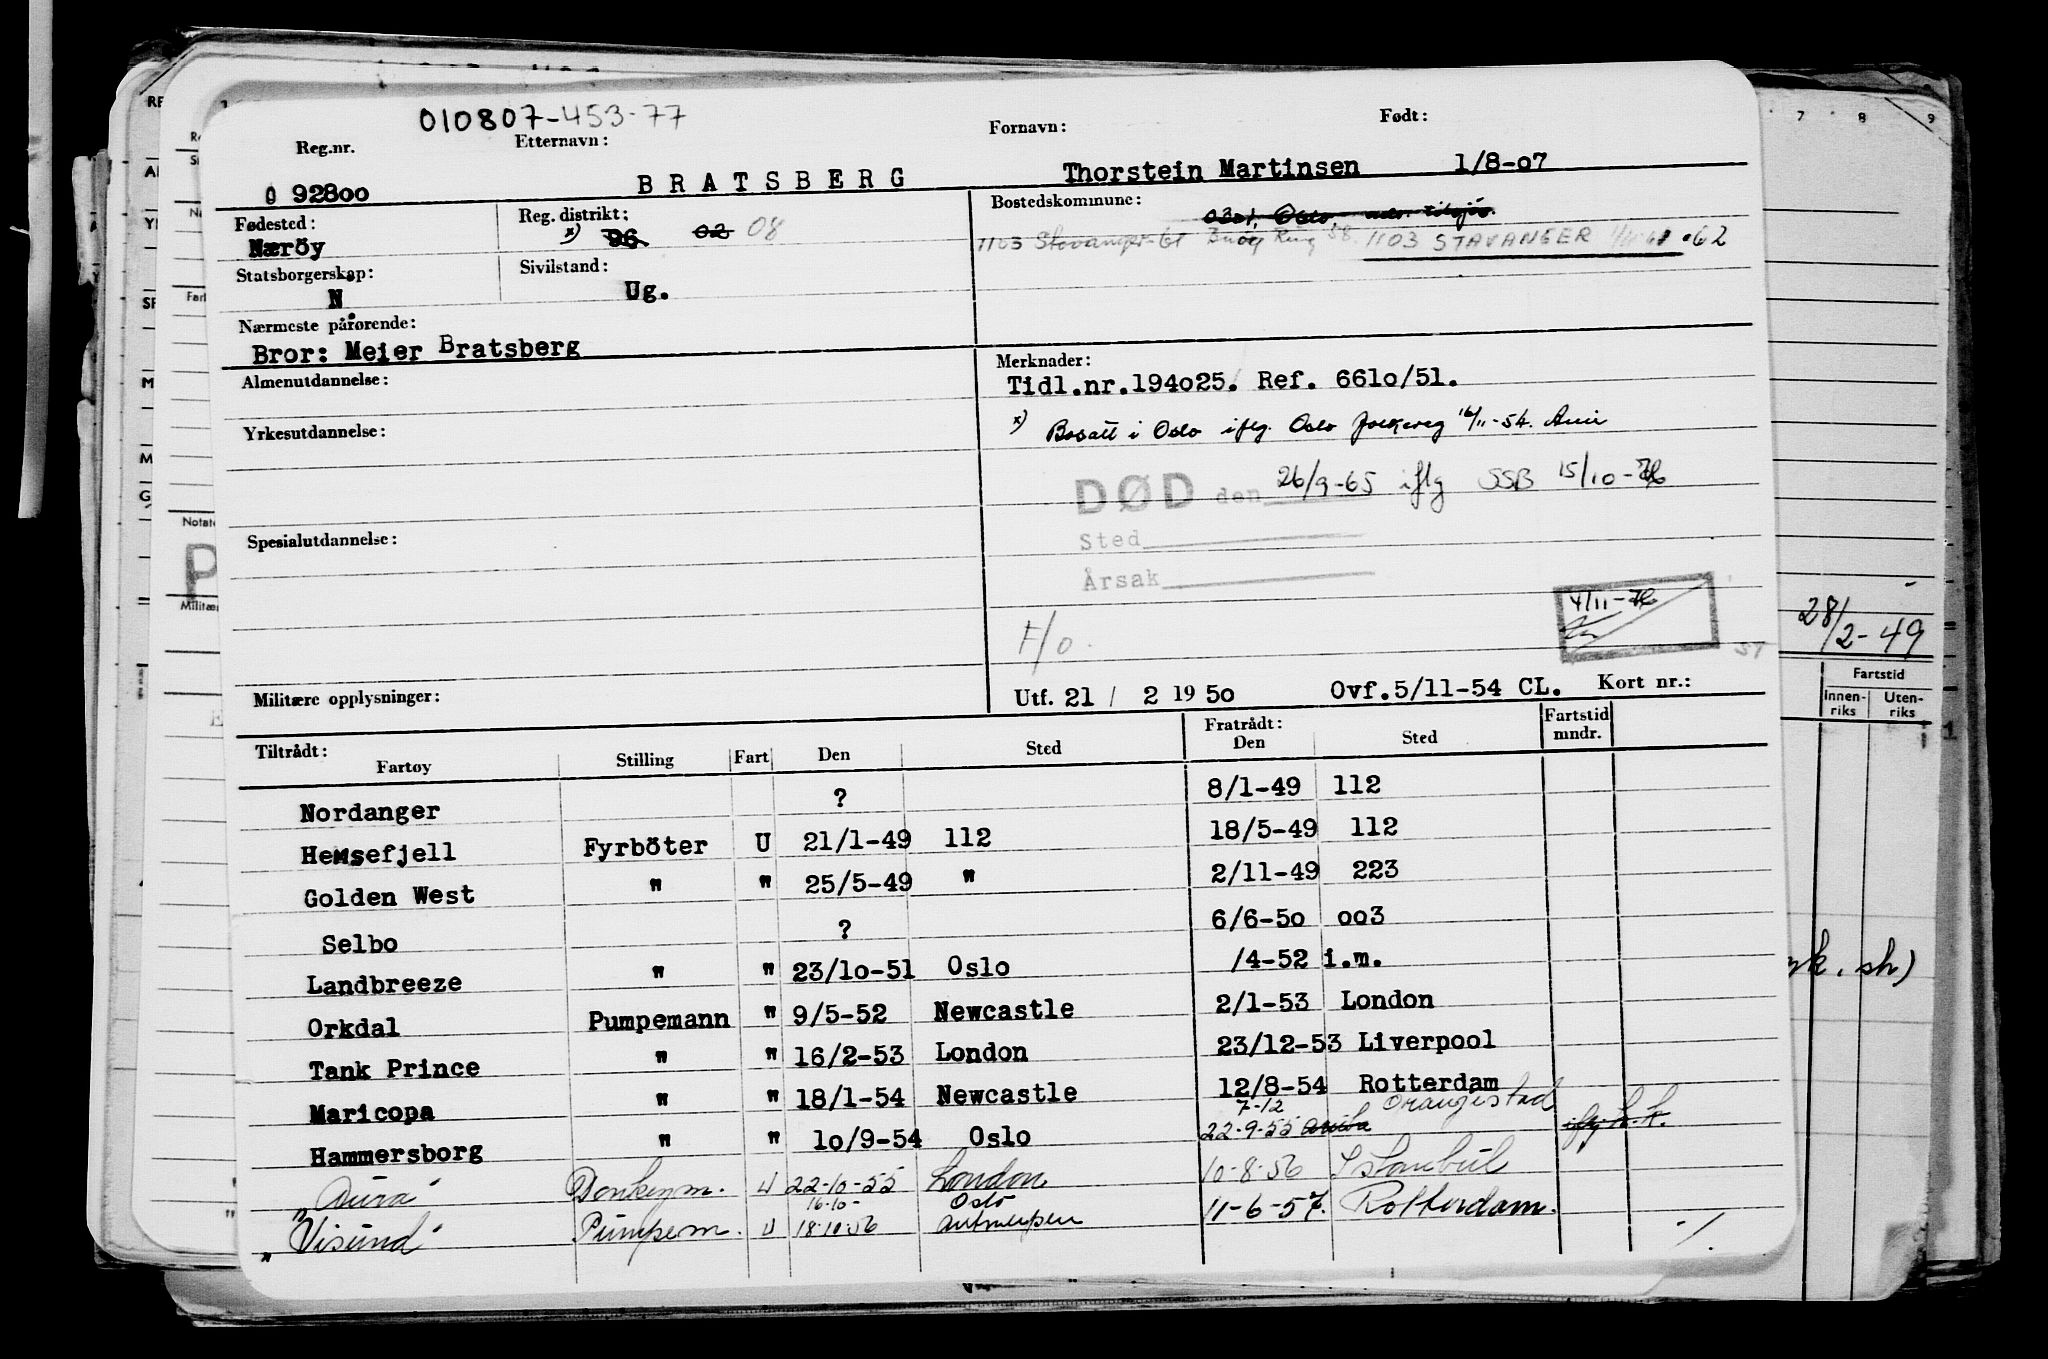 010807-453-77
Reg.nr. Etternavn: Fornavn: Født:
0 92800 BRATSBERG Thorstein Martinsen 1/8-07
Fødested: Reg. distrikt: Bostedskommune:
Næröy x) 96 02 08 0301, Oslo
1103 Stavanger 61 58 1103 STAVANGER 62
Statsborgerskap: Sivilstand:
N. Ug.
Nærmeste pårørende:
Bror: Meier Bratsberg
Almenutdannelse:
Yrkesutdannelse:
Spesialutdannelse:
Militære opplysninger:
Merknader:
Tidl.nr.194025. Ref. 6610/51.
x) Bosatt i Oslo iflg. Oslo folkereg 16/11-54.
DØD den 26/9-65 iflg SSB 15/10-76
Sted
Årsak
4/11-76
H/o.
57
Utf. 21 / 2 1950 Ovf.5/11-54 CL. Kort nr.:
Tiltrådt: Fratrådt: Fartstid mndr.
Fartøy Stilling Fart Den Sted Den Sted
Nordanger ? 8/1-49 112
Hemsefjell Fyrböter U 21/1-49 112 18/5-49 112
Golden West " " 25/5-49 " 2/11-49 223
Selbo ? 6/6-50 003
Landbreeze " " 23/10-51 Oslo /4-52 i.m.
Orkdal Pumpemann " 9/5-52 Newcastle 2/1-53 London
Tank Prince " " 16/2-53 London 23/12-53 Liverpool
Maricopa " " 18/1-54 Newcastle 12/8-54 Rotterdam
7-12 Oranjestad
Hammersborg " " 10/9-54 Oslo 22-9-55 Aruba
"Aura" Donkeym. U 22-10-55 London 10-8-56 Istambul
16-10- Oslo
"Visund" Pumpem. U 18-10 56 Antwerpen 11-6-57. Rotterdam.
7 8 9
28/2-49
Fartstid
Innen-riks Uten-riks
sh)